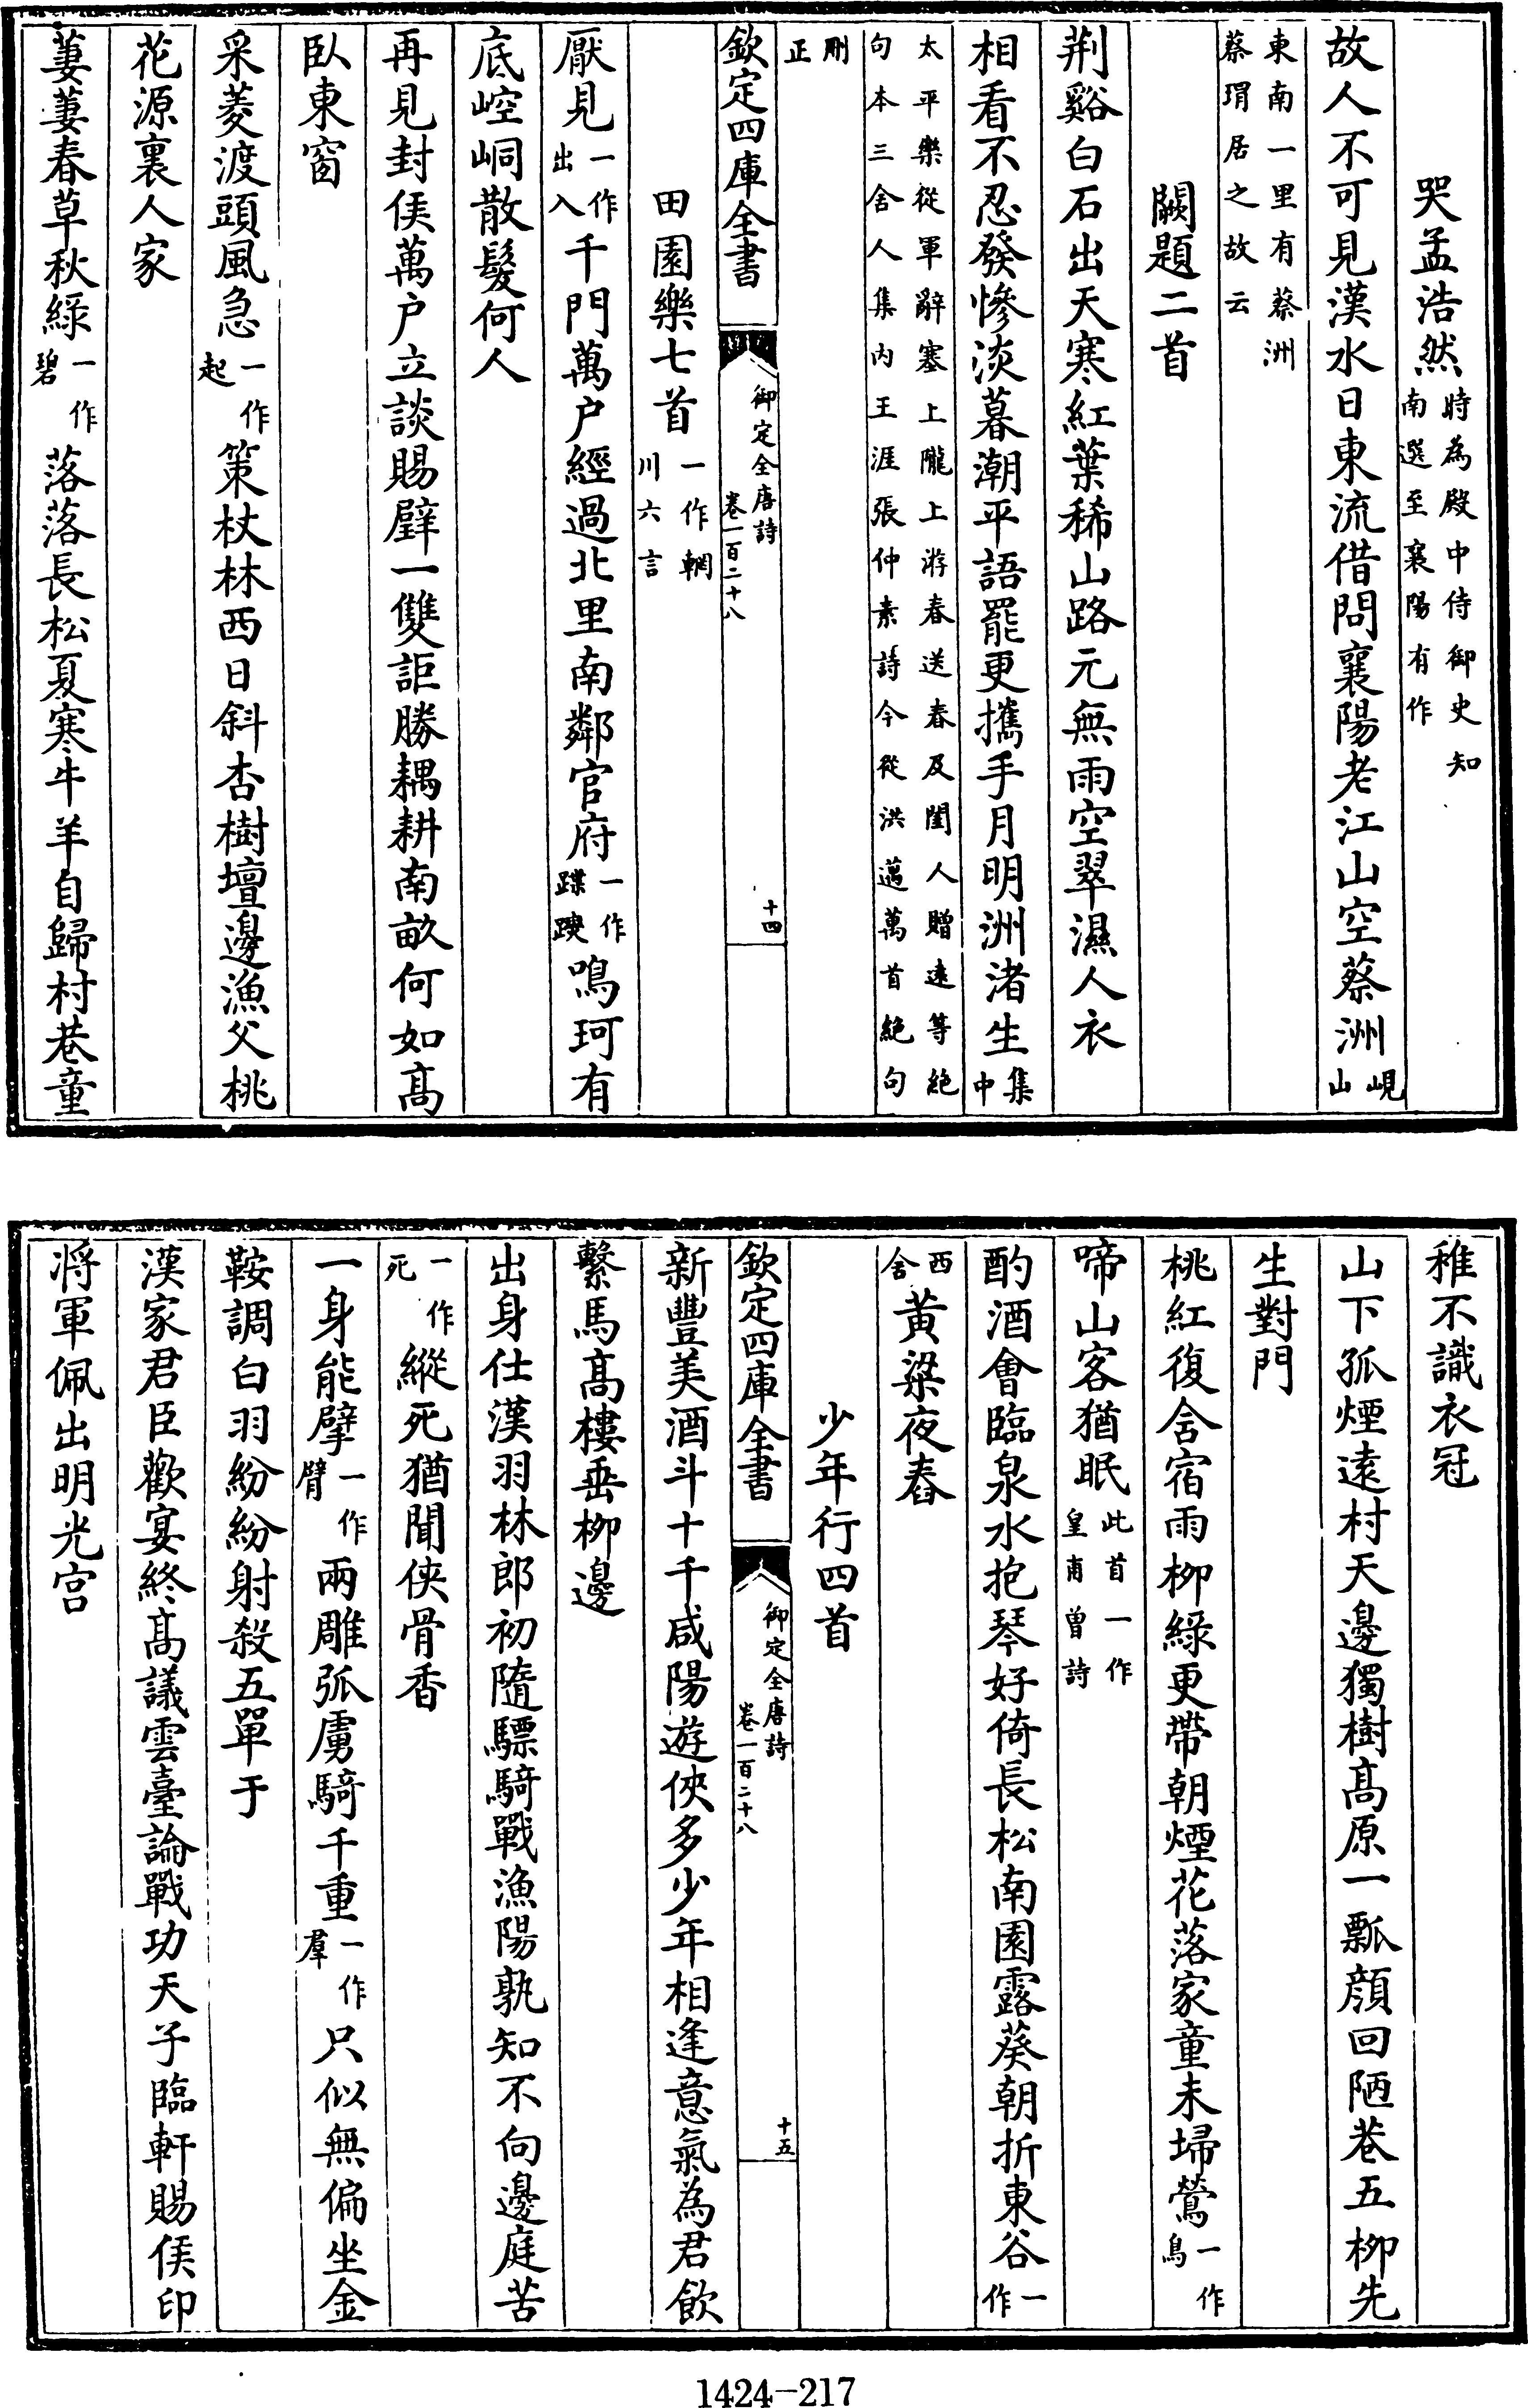 哭孟浩然時為殿中侍御史知南選至襄陽有作
故人不可見漢水日東流借問襄陽老江山空蔡洲峴山
東南一里有蔡洲蔡瑁居之故云
闕題二首
荆谿白石出天寒紅葉稀山路元無雨空翠濕人衣
相看不忍發慘淡暮潮平語罷更攜手月明洲渚生集中
太平樂從軍辭塞上隴上游春送春及閨人贈遠等絶句本三舍人集内王涯張仲素詩今從洪邁萬首絶句
刪正
欽定四庫全書
御定全唐詩
卷一百二十八
十四
田園樂七首一作輞川六言
厭見一作出入千門萬户經過北里南鄰官府一作蹀躞鳴珂有
底崆峒散髮何人
再見封侯萬户立談賜璧一雙詎勝耦耕南畝何如高
臥東窗
采菱渡頭風急一作起策杖林西日斜杏樹壇邊漁父桃
花源裏人家
萋萋春草秋綠一作碧落落長松夏寒牛羊自歸村巷童
稚不識衣冠
山下孤煙遠村天邊獨樹高原一瓢顔回陋巷五柳先
生對門
桃紅復含宿雨柳綠更帶朝煙花落家童未埽鶯一作鳥
啼山客猶眠此首一作皇甫曾詩
酌酒會臨泉水抱琴好倚長松南園露葵朝折東谷一作
西舍黄粱夜舂
欽定四庫全書
御定全唐詩
卷一百二十八
十五
少年行四首
新豐美酒斗十千咸陽遊俠多少年相逢意氣為君飲
繫馬高樓垂柳邊
出身仕漢羽林郎初隨驃騎戰漁陽孰知不向邊庭苦
一作死縱死猶聞俠骨香
一身能擘一作臂兩雕弧虜騎千重一作羣只似無偏坐金
鞍調白羽紛紛射殺五單于
漢家君臣歡宴終高議雲臺論戰功天子臨軒賜侯印
將軍佩出明光宫
1424—217